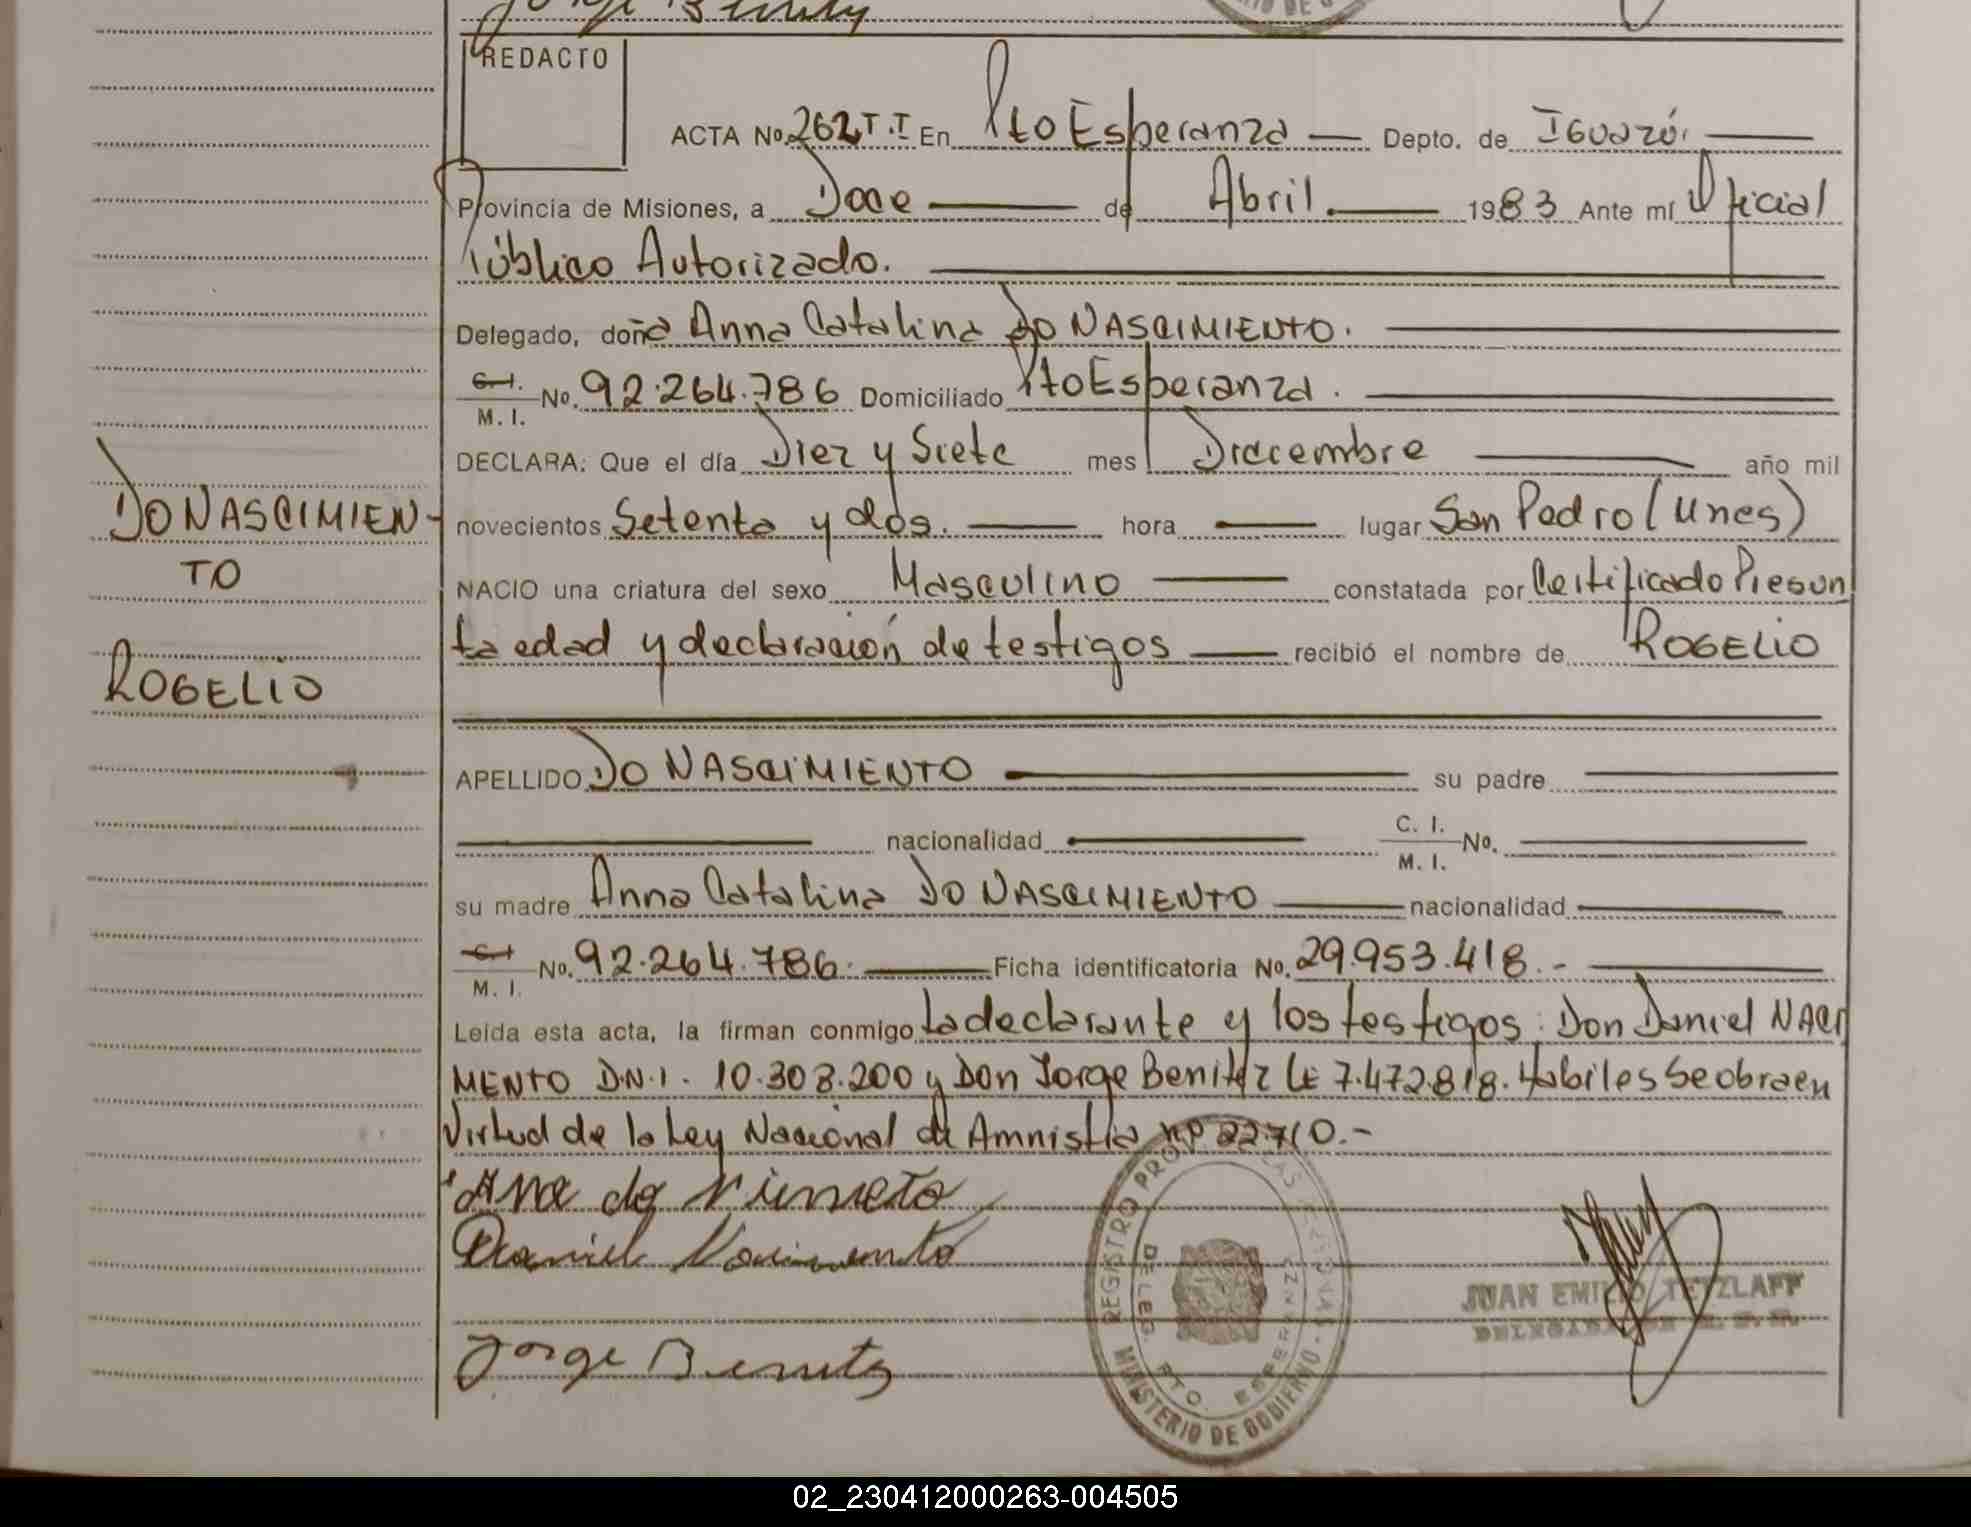 Jorge Benitz
REDACTO
ACTA No. 262 T.I En Pto Esperanza Depto. de Iguazú.
Provincia de Misiones, a Doce de Abril. 1983 Ante mí Oficial
Público Autorizado.
Delegado, doña Anna Catalina DO NASCIMIENTO.
C.I. M. I. No. 92.264.786 Domiciliado Pto Esperanza.
DECLARA: Que el día Diez y Siete mes Diciembre año mil
novecientos Setenta y dos. hora lugar San Pedro (Mnes)
NACIO una criatura del sexo Masculino constatada por Certificado Presun
ta edad y declaración de testigos recibió el nombre de ROGELIO
DO NASCIMIEN-
TO
ROGELIO
APELLIDO DO NASCIMIENTO su padre
nacionalidad C. I. M. I. No.
su madre Anna Catalina DO NASCIMIENTO nacionalidad
C.I. M. I. No. 92.264.786. Ficha identificatoria No. 29.953.418.-
Leída esta acta, la firman conmigo La declarante y los testigos: Don Daniel NACI
MENTO D.N.I. 10.303.200 y Don Jorge Benitez LE 7.472.818. Habiles Se obra en
Virtud de la Ley Nacional de Amnistia nº 22710.-
Ana do
Daniel Nacimento
Jorge Benitz
REGISTRO PRO DE LAS PERSONAS - MINISTERIO DE GOBIERNO
DELEG. PTO. ESPERANZA
JUAN EMILIO TETZLAFF
02_230412000263-004505